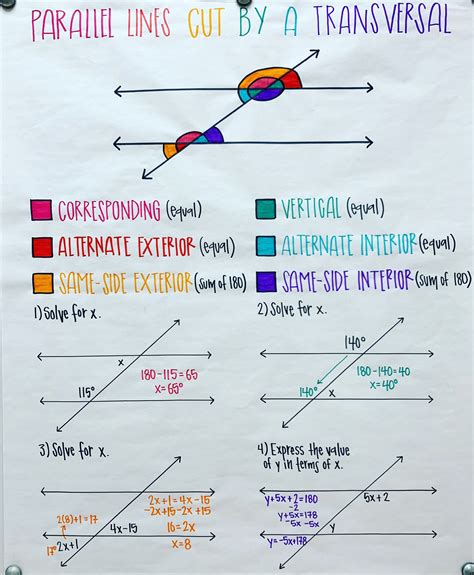 PARALLEL LINES CUT BY A TRANSVERSAL
CORRESPONDING (equal)
VERTICAL (equal)
ALTERNATE EXTERIOR (equal)
ALTERNATE INTERIOR (equal)
SAME-SIDE EXTERIOR (sum of 180)
SAME-SIDE INTERIOR (sum of 180)
1) Solve for x.
x
115°
180-115=65
x=65°
2) Solve for x.
140°
140°
x
180-140=40
x=40°
3) Solve for x.
2(8)+1=17
17° 2x+1
4x-15
2x+1=4x-15
-2x+15 -2x +15
16=2x
x=8
4) Express the value
of y in terms of x.
y+5x+2=180
-2
y+5x=178
-5x -5x
y=-5x+178
5x+2
y